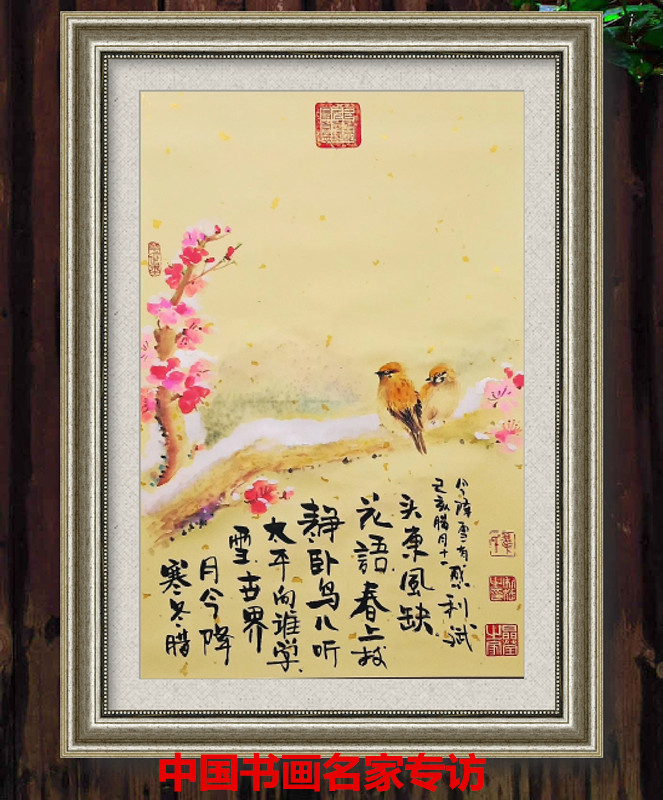 寒冬腊
月今降
雪世界
太平向谁学
静卧鸟儿听
花語春上枝
头東風缺
己亥腊月十一
今降雪有感利斌
中国书画名家专访